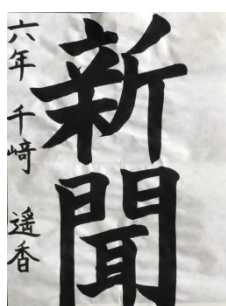 新聞
六年 千﨑 遥香